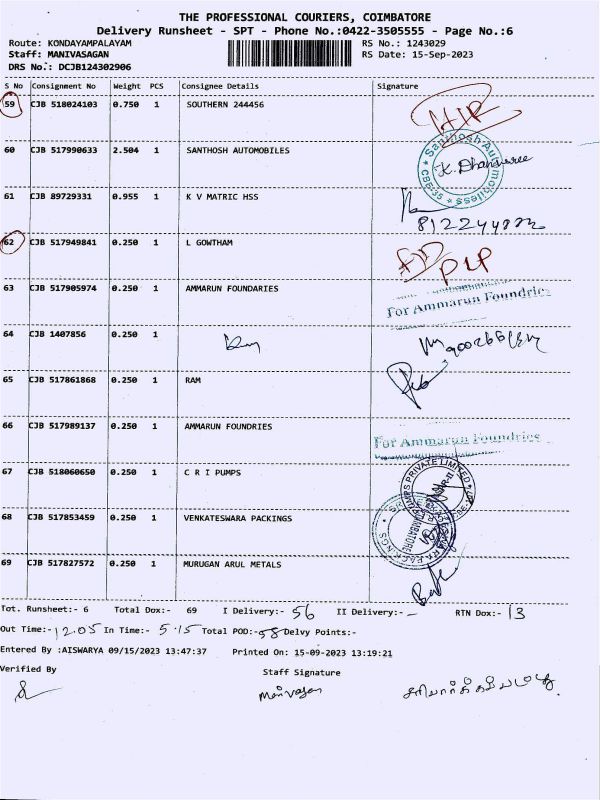 THE PROFESSIONAL COURIERS, COIMBATORE
Delivery Runsheet - SPT - Phone No.:0422-3505555 - Page No.:6
Route: KONDAYAMPALAYAM RS No.: 1243029
Staff: MANIVASAGAN RS Date: 15-Sep-2023
DRS No.: DCJB124302906
S No Consignment No Weight PCS Consignee Details Signature
59 CJB 518024103 0.750 1 SOUTHERN 244456
60 CJB 517990633 2.504 1 SANTHOSH AUTOMOBILES
Santhosh Automobiless * CBE-35 *
61 CJB 89729331 0.955 1 K V MATRIC HSS
62 CJB 517949841 0.250 1 L GOWTHAM
63 CJB 517905974 0.250 1 AMMARUN FOUNDARIES
For Ammarun Foundries
64 CJB 1407856 0.250 1
65 CJB 517861868 0.250 1 RAM
66 CJB 517989137 0.250 1 AMMARUN FOUNDRIES For Ammarun Foundries
67 CJB 518060650 0.250 1 C R I PUMPS
PRIVATE LIMITED
68 CJB 517853459 0.250 1 VENKATESWARA PACKINGS
COIMBATORE
69 CJB 517827572 0.250 1 MURUGAN ARUL METALS
Tot. Runsheet:- 6 Total Dox:- 69 I Delivery:- 56 II Delivery:- - RTN Dox:- 13
Out Time:- 12.05 In Time:- 5.15 Total POD:- 58 Delvy Points:-
Entered By :AISWARYA 09/15/2023 13:47:37 Printed On: 15-09-2023 13:19:21
Verified By Staff Signature
Manivasan